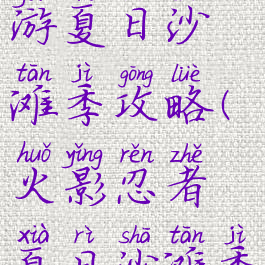 游夏日沙
tān jì gōng lüè
滩季攻略(
huǒ yǐng rěn zhě
火影忍者
xià rì shā tān jì
夏日沙滩季